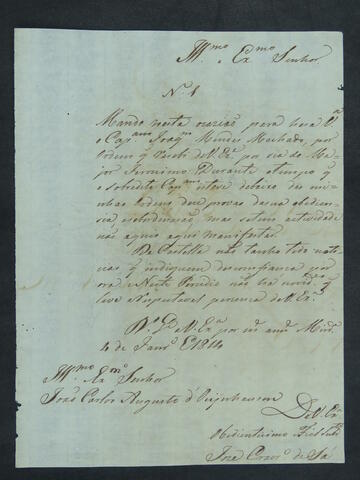 Illmo e Exmo Senhor
No. 1
Mando nesta ocazião para essa Va
o Capam Joaqm Mendes Machado, por
ordem q recebi de V. Exa por via do Ma-
jor Jeronimo Durante o tempo q
o sobredito Capm esteve debaixo das mi-
nhas ordens deu provas da sua obedien-
cia e subordinação mas sem actividade
não aquis aqui manifestar.
De Castella não tenho tido noti-
cias q indiquem desconfiança por
ora. Neste Prezidio não ha novide q
leve a respeitavel prezença de V. Exa.
Ds. Ge. V. Exa por ms. ans. Mirda.
4 de Janro. de 1814
Illmo e Exmo Senhor
João Carlos Augusto d'Oeynhausen
De V. Exa
Obidientissimo Fiel Subdo
José Craveiro de Sá